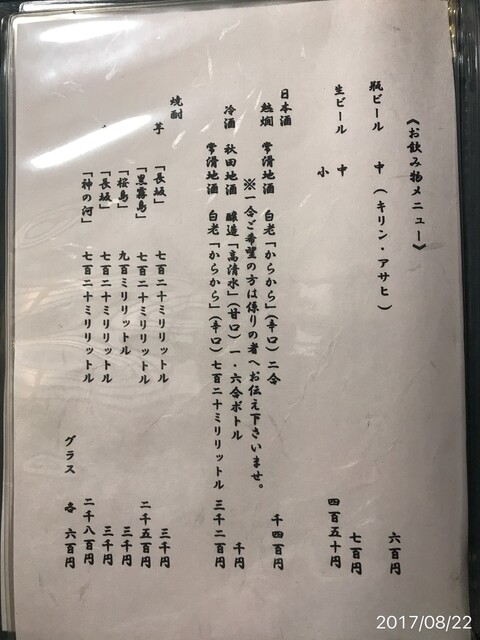 《お飲み物メニュー》
瓶ビール 中 (キリン・アサヒ) 六百円
生ビール 中 七百円
小 四百五十円
日本酒
熱燗 常滑地酒 白老「からから」(辛口) 二合 千四百円
※一合ご希望の方は係りの者へお伝え下さいませ。
冷酒 秋田地酒 醸造「高清水」(甘口) 一・六合ボトル 千円
常滑地酒 白老「からから」(辛口) 七百二十ミリリットル 三千二百円
焼酎
芋 「長坂」 七百二十ミリリットル 三千円
「黒霧島」 七百二十ミリリットル 二千五百円
「桜島」 九百ミリリットル 三千円
「長坂」 七百二十ミリリットル 三千円
「神の河」 七百二十ミリリットル 二千八百円
グラス 各 六百円
2017/08/22